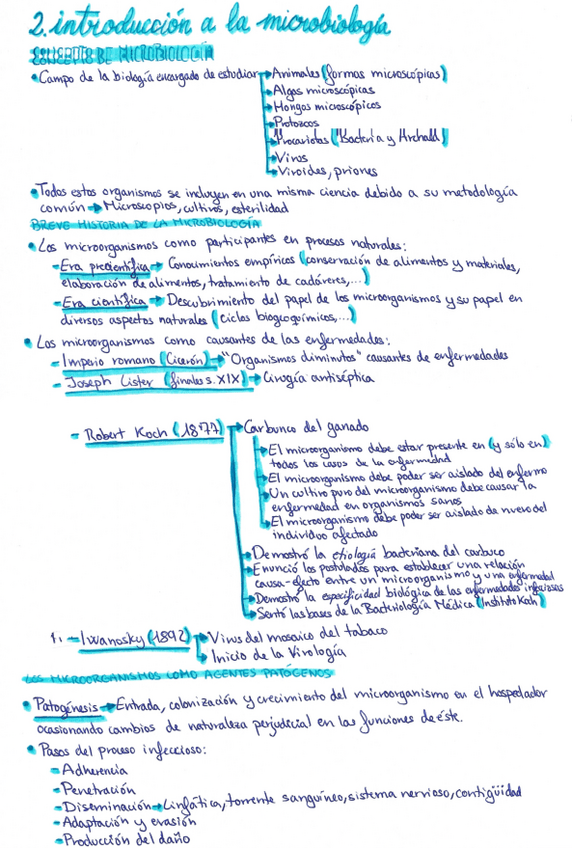 2. introducción a la microbiología
CONCEPTO DE MICROBIOLOGÍA
• Campo de la biología encargado de estudiar → Animales (formas microscópicas)
→ Algas microscópicas
→ Hongos microscópicos
→ Protozoos
→ Procariotas (Bacteria y Archaea)
→ Virus
→ Viroides, priones
• Todos estos organismos se incluyen en una misma ciencia debido a su metodología
común → Microscopios, cultivos, esterilidad
BREVE HISTORIA DE LA MICROBIOLOGÍA
• Los microorganismos como participantes en procesos naturales:
- Era precientífica → Conocimientos empíricos (conservación de alimentos y materiales,
elaboración de alimentos, tratamiento de cadáveres,...)
- Era científica → Descubrimiento del papel de los microorganismos y su papel en
diversos aspectos naturales (ciclos biogeoquímicos,...)
• Los microorganismos como causantes de las enfermedades:
- Imperio romano (Cicerón) → "Organismos diminutos" causantes de enfermedades
- Joseph Lister (finales s. XIX) → Cirugía antiséptica
- Robert Koch (1877) → Carbunco del ganado
→ El microorganismo debe estar presente en (y sólo en)
todos los casos de la enfermedad
→ El microorganismo debe poder ser aislado del enfermo
→ Un cultivo puro del microorganismo debe causar la
enfermedad en organismos sanos
→ El microorganismo debe poder ser aislado de nuevo del
individuo afectado
→ Demostró la etiología bacteriana del carbuco
→ Enunció los postulados para establecer una relación
causa-efecto entre un microorganismo y una enfermedad
→ Demostró la especificidad biológica de las enfermedades infecciosas
→ Sentó las bases de la Bacteriología Médica (Instituto Koch)
1. - Iwanosky (1892) → Virus del mosaico del tabaco
→ Inicio de la Virología
LOS MICROORGANISMOS COMO AGENTES PATÓGENOS
• Patogénesis → Entrada, colonización y crecimiento del microorganismo en el hospedador
ocasionando cambios de naturaleza perjudicial en las funciones de éste.
• Pasos del proceso infeccioso:
- Adherencia
- Penetración
- Diseminación → Linfática, torrente sanguíneo, sistema nervioso, contigüidad
- Adaptación y evasión
- Producción del daño